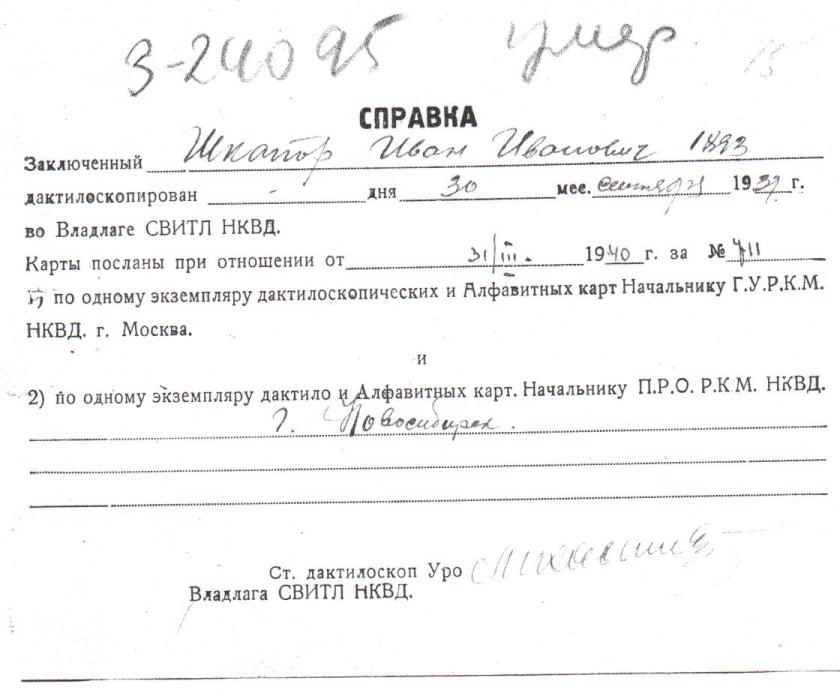 3-24095 умер 15
СПРАВКА
Заключенный Шкапор Иван Иванович 1893
дактилоскопирован - дня 30 мес. сентября 1939 г.
во Владлаге СВИТЛ НКВД.
Карты посланы при отношении от 31/III. 1940 г. за №
1) по одному экземпляру дактилоскопических и Алфавитных карт Начальнику Г.У.Р.К.М.
НКВД. г. Москва.
и
2) по одному экземпляру дактило и Алфавитных карт. Начальнику П.Р.О. Р.К М. НКВД.
г. Новосибирск.
Ст. дактилоскоп Уро
Владлага СВИТЛ НКВД.